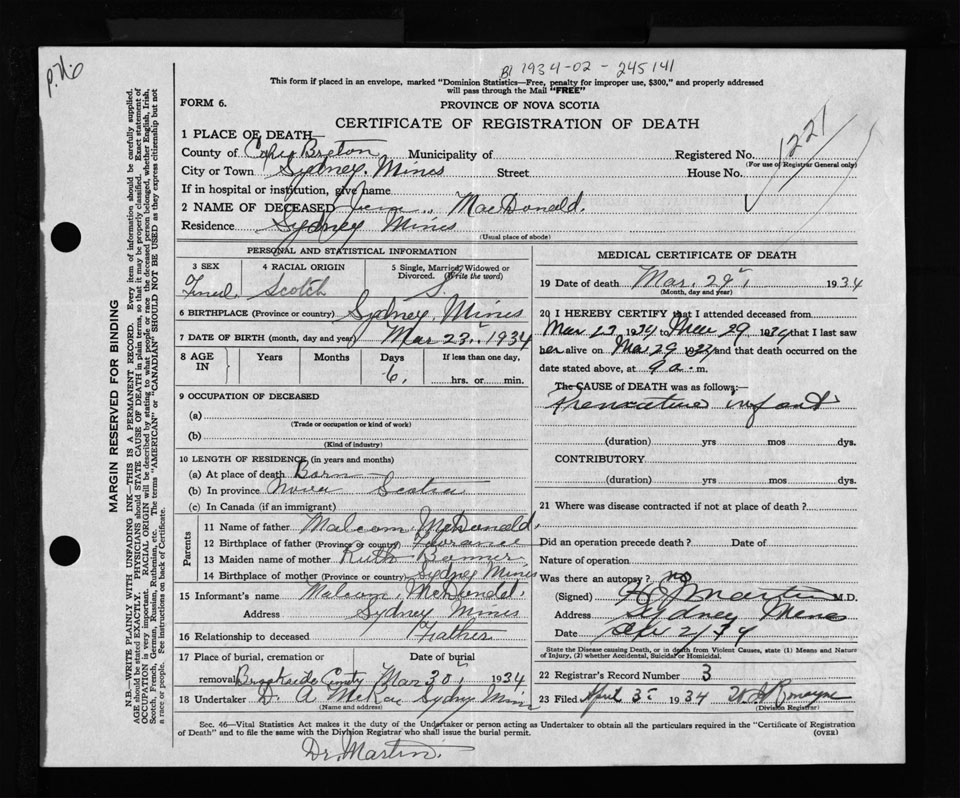 p.n.o
B1 1934-02-245141
This form if placed in an envelope, marked "Dominion Statistics—Free, penalty for improper use, $300," and properly addressed
will pass through the Mail "FREE"
FORM 6.
PROVINCE OF NOVA SCOTIA
CERTIFICATE OF REGISTRATION OF DEATH
1221
1 PLACE OF DEATH—
County of Cape Breton Municipality of Registered No.
(For use of Registrar General only)
City or Town Sydney Mines Street House No.
If in hospital or institution, give name
2 NAME OF DECEASED MacDonald.
Residence Sydney Mines
(Usual place of abode)
PERSONAL AND STATISTICAL INFORMATION
3 SEX 4 RACIAL ORIGIN 5 Single, Married, Widowed or
Divorced. (Write the word)
Scotch S.
6 BIRTHPLACE (Province or country) Sydney Mines
7 DATE OF BIRTH (month, day and year) Mar 23, 1934
8 AGE IN Years Months Days If less than one day,
6. hrs. or min.
9 OCCUPATION OF DECEASED
(a)
(Trade or occupation or kind of work)
(b)
(Kind of industry)
10 LENGTH OF RESIDENCE (in years and months)
(a) At place of death Born
(b) In province Nova Scotia
(c) In Canada (if an immigrant)
Parents
11 Name of father Malcom McDonald,
12 Birthplace of father (Province or country) Florance
13 Maiden name of mother Ruth
14 Birthplace of mother (Province or country) Sydney Mines
15 Informant's name Malcom McDonald,
Address Sydney Mines
16 Relationship to deceased Father
17 Place of burial, cremation or Date of burial
removal Brookside Cemty Mar 30, 1934
18 Undertaker D. A McRae Sydney Mines
(Name and address)
MEDICAL CERTIFICATE OF DEATH
19 Date of death Mar. 29, 1934
(Month, day and year)
20 I HEREBY CERTIFY that I attended deceased from
Mar 23 1934 to Mar 29 1934 that I last saw
her alive on Mar 29 1934 and that death occurred on the
date stated above, at 9 a. m.
The CAUSE OF DEATH was as follows:—
Premature infant
(duration) yrs mos dys.
CONTRIBUTORY
(duration) yrs mos dys.
21 Where was disease contracted if not at place of death?
Did an operation precede death? Date of
Nature of operation
Was there an autopsy? no
(Signed) Martin M.D.
Address Sydney Mines
Date
State the Disease causing Death, or in death from Violent Causes, state (1) Means and Nature
of Injury, (2) whether Accidental, Suicidal or Homicidal.
22 Registrar's Record Number 3
23 Filed April 3 1934
(Division Registrar)
Sec. 46—Vital Statistics Act makes it the duty of the Undertaker or person acting as Undertaker to obtain all the particulars required in the "Certificate of Registration
of Death" and to file the same with the Division Registrar who shall issue the burial permit.
(OVER)
Dr. Martin.
MARGIN RESERVED FOR BINDING
N.B.—WRITE PLAINLY WITH UNFADING INK—THIS IS A PERMANENT RECORD. Every item of information should be carefully supplied.
AGE should be stated EXACTLY. PHYSICIANS should STATE CAUSE OF DEATH in plain terms, so that it may be properly classified. Exact statement of
OCCUPATION is very important. RACIAL ORIGIN will be described by stating to what people or race the deceased person belonged, whether English, Irish,
Scotch, French, German, Russian, Ruthenian, etc. The terms "AMERICAN" or "CANADIAN" SHOULD NOT BE USED as they express citizenship but not
a race or people. See instructions on back of Certificate.